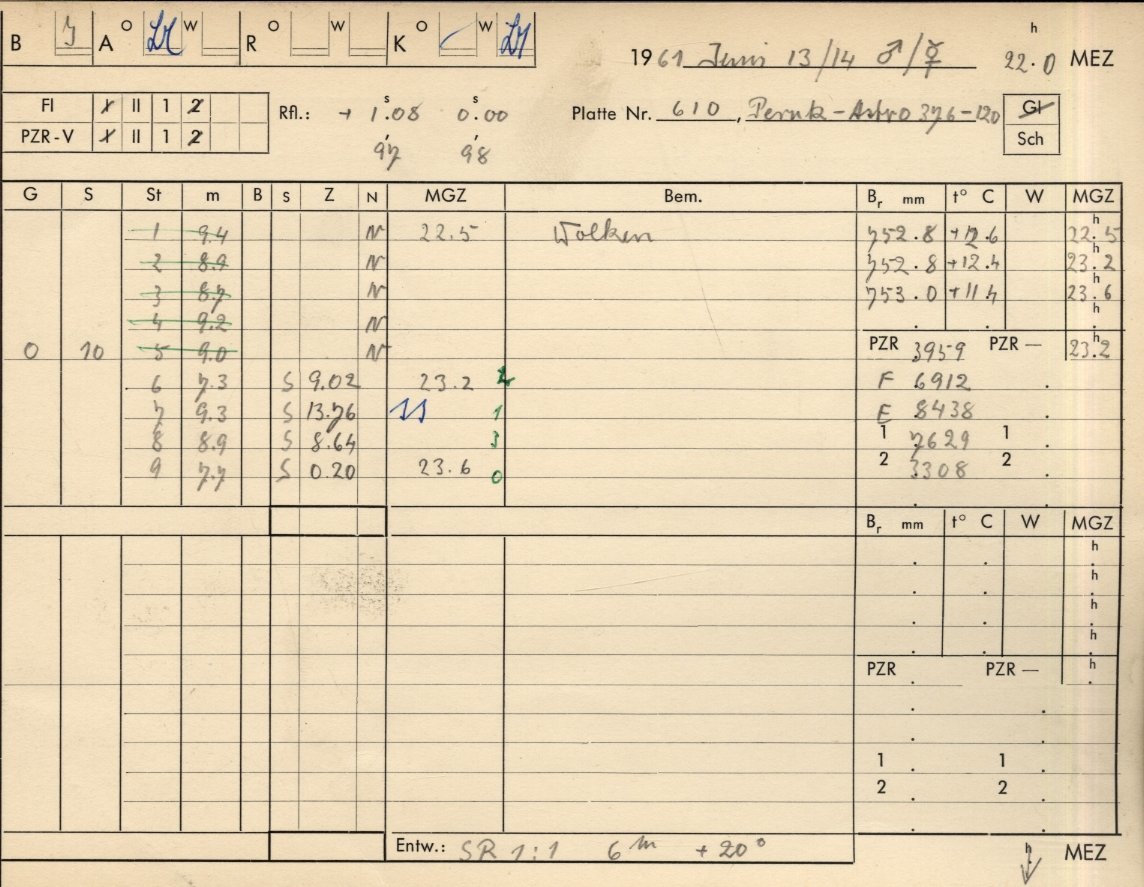 B J A O W R O W K O W
1961 Juni 13/14 ♂/☿ 22.0 h MEZ
FI I II 1 2
PZR-V I II 1 2
Rfl.: + 1.08 s 0.00 s
97 98
Platte Nr. 610, Perutz-Astro 376-120 Gl
Sch
G S St m B S Z N MGZ Bem. Br mm t° C W MGZ
1 9.4 N 22.5 Wolken 752.8 +12.6 22.5 h
2 8.9 N 752.8 +12.4 23.2 h
3 8.7 N 753.0 +11.4 23.6 h
4 9.2 N . . h
0 10 5 9.0 N PZR 3959 PZR — 23.2 h
6 7.3 S 9.02 23.2 F 6912
7 9.3 S 13.76 1 E 8438
8 8.9 S 8.64 3 1 7629 1
9 7.7 S 0.20 23.6 0 2 3308 2
Br mm t° C W MGZ
h
h
h
h
PZR PZR — h
1 1
2 2
Entw.: SR 1:1 6 m +20° h MEZ